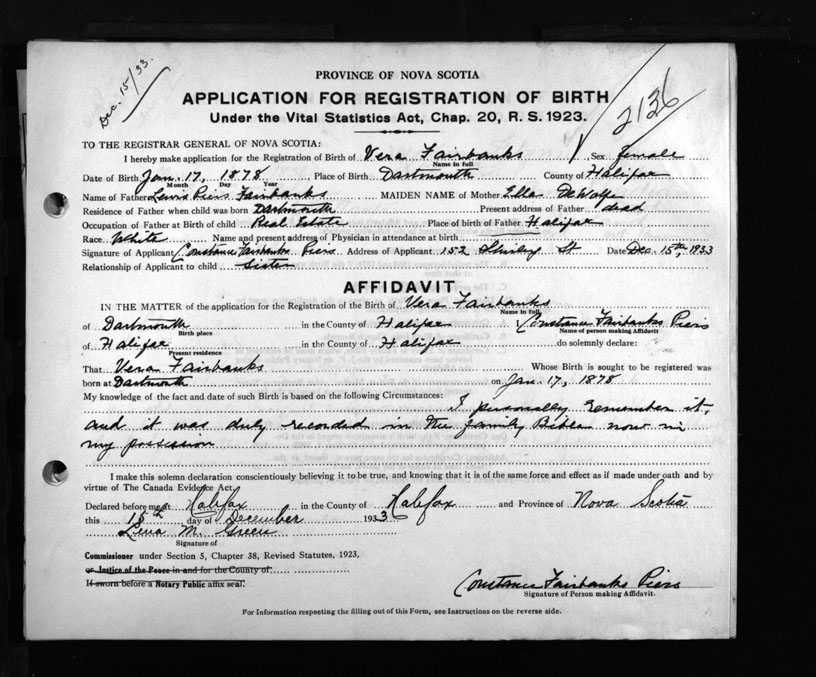 Dec. 15/33.
2136
PROVINCE OF NOVA SCOTIA
APPLICATION FOR REGISTRATION OF BIRTH
Under the Vital Statistics Act, Chap. 20, R. S. 1923.
TO THE REGISTRAR GENERAL OF NOVA SCOTIA:
I hereby make application for the Registration of Birth of Vera Fairbanks Sex female
Name in full
Date of Birth Jan. 17, 1878 Place of Birth Dartmouth County of Halifax
Month Day Year
Name of Father Lewis Piers Fairbanks MAIDEN NAME of Mother Ella DeWolfe
Residence of Father when child was born Dartmouth Present address of Father dead
Occupation of Father at Birth of child Real Estate Place of birth of Father Halifax
Race White Name and present address of Physician in attendance at birth
Signature of Applicant Constance Fairbanks Piers Address of Applicant 152 Shirley St Date Dec. 15th, 1933
Relationship of Applicant to child Sister
AFFIDAVIT
IN THE MATTER of the application for the Registration of the Birth of Vera Fairbanks
Name in full
of Dartmouth in the County of Halifax I Constance Fairbanks Piers
Birth place Name of person making Affidavit
of Halifax in the County of Halifax do solemnly declare:
Present residence
That Vera Fairbanks Whose Birth is sought to be registered was
born at Dartmouth on Jan. 17, 1878
My knowledge of the fact and date of such Birth is based on the following Circumstances:
I personally remember it,
and it was duly recorded in the family Bible now in
my possession
I make this solemn declaration conscientiously believing it to be true, and knowing that it is of the same force and effect as if made under oath and by
virtue of The Canada Evidence Act.
Declared before me at Halifax in the County of Halifax and Province of Nova Scotia
this 15th day of December 1933
Lena M. Green
Signature of
Commissioner under Section 5, Chapter 38, Revised Statutes, 1923,
or Justice of the Peace in and for the County of
If sworn before a Notary Public affix seal.
Constance Fairbanks Piers
Signature of Person making Affidavit.
For Information respecting the filling out of this Form, see Instructions on the reverse side.